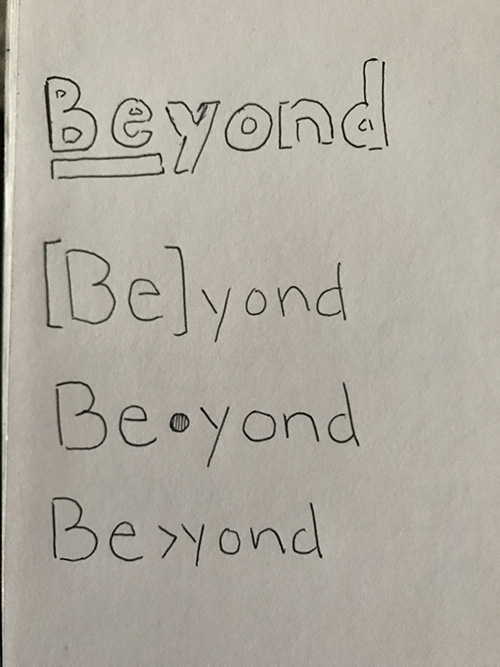 Beyond
[Be]yond
Be•yond
Be>yond